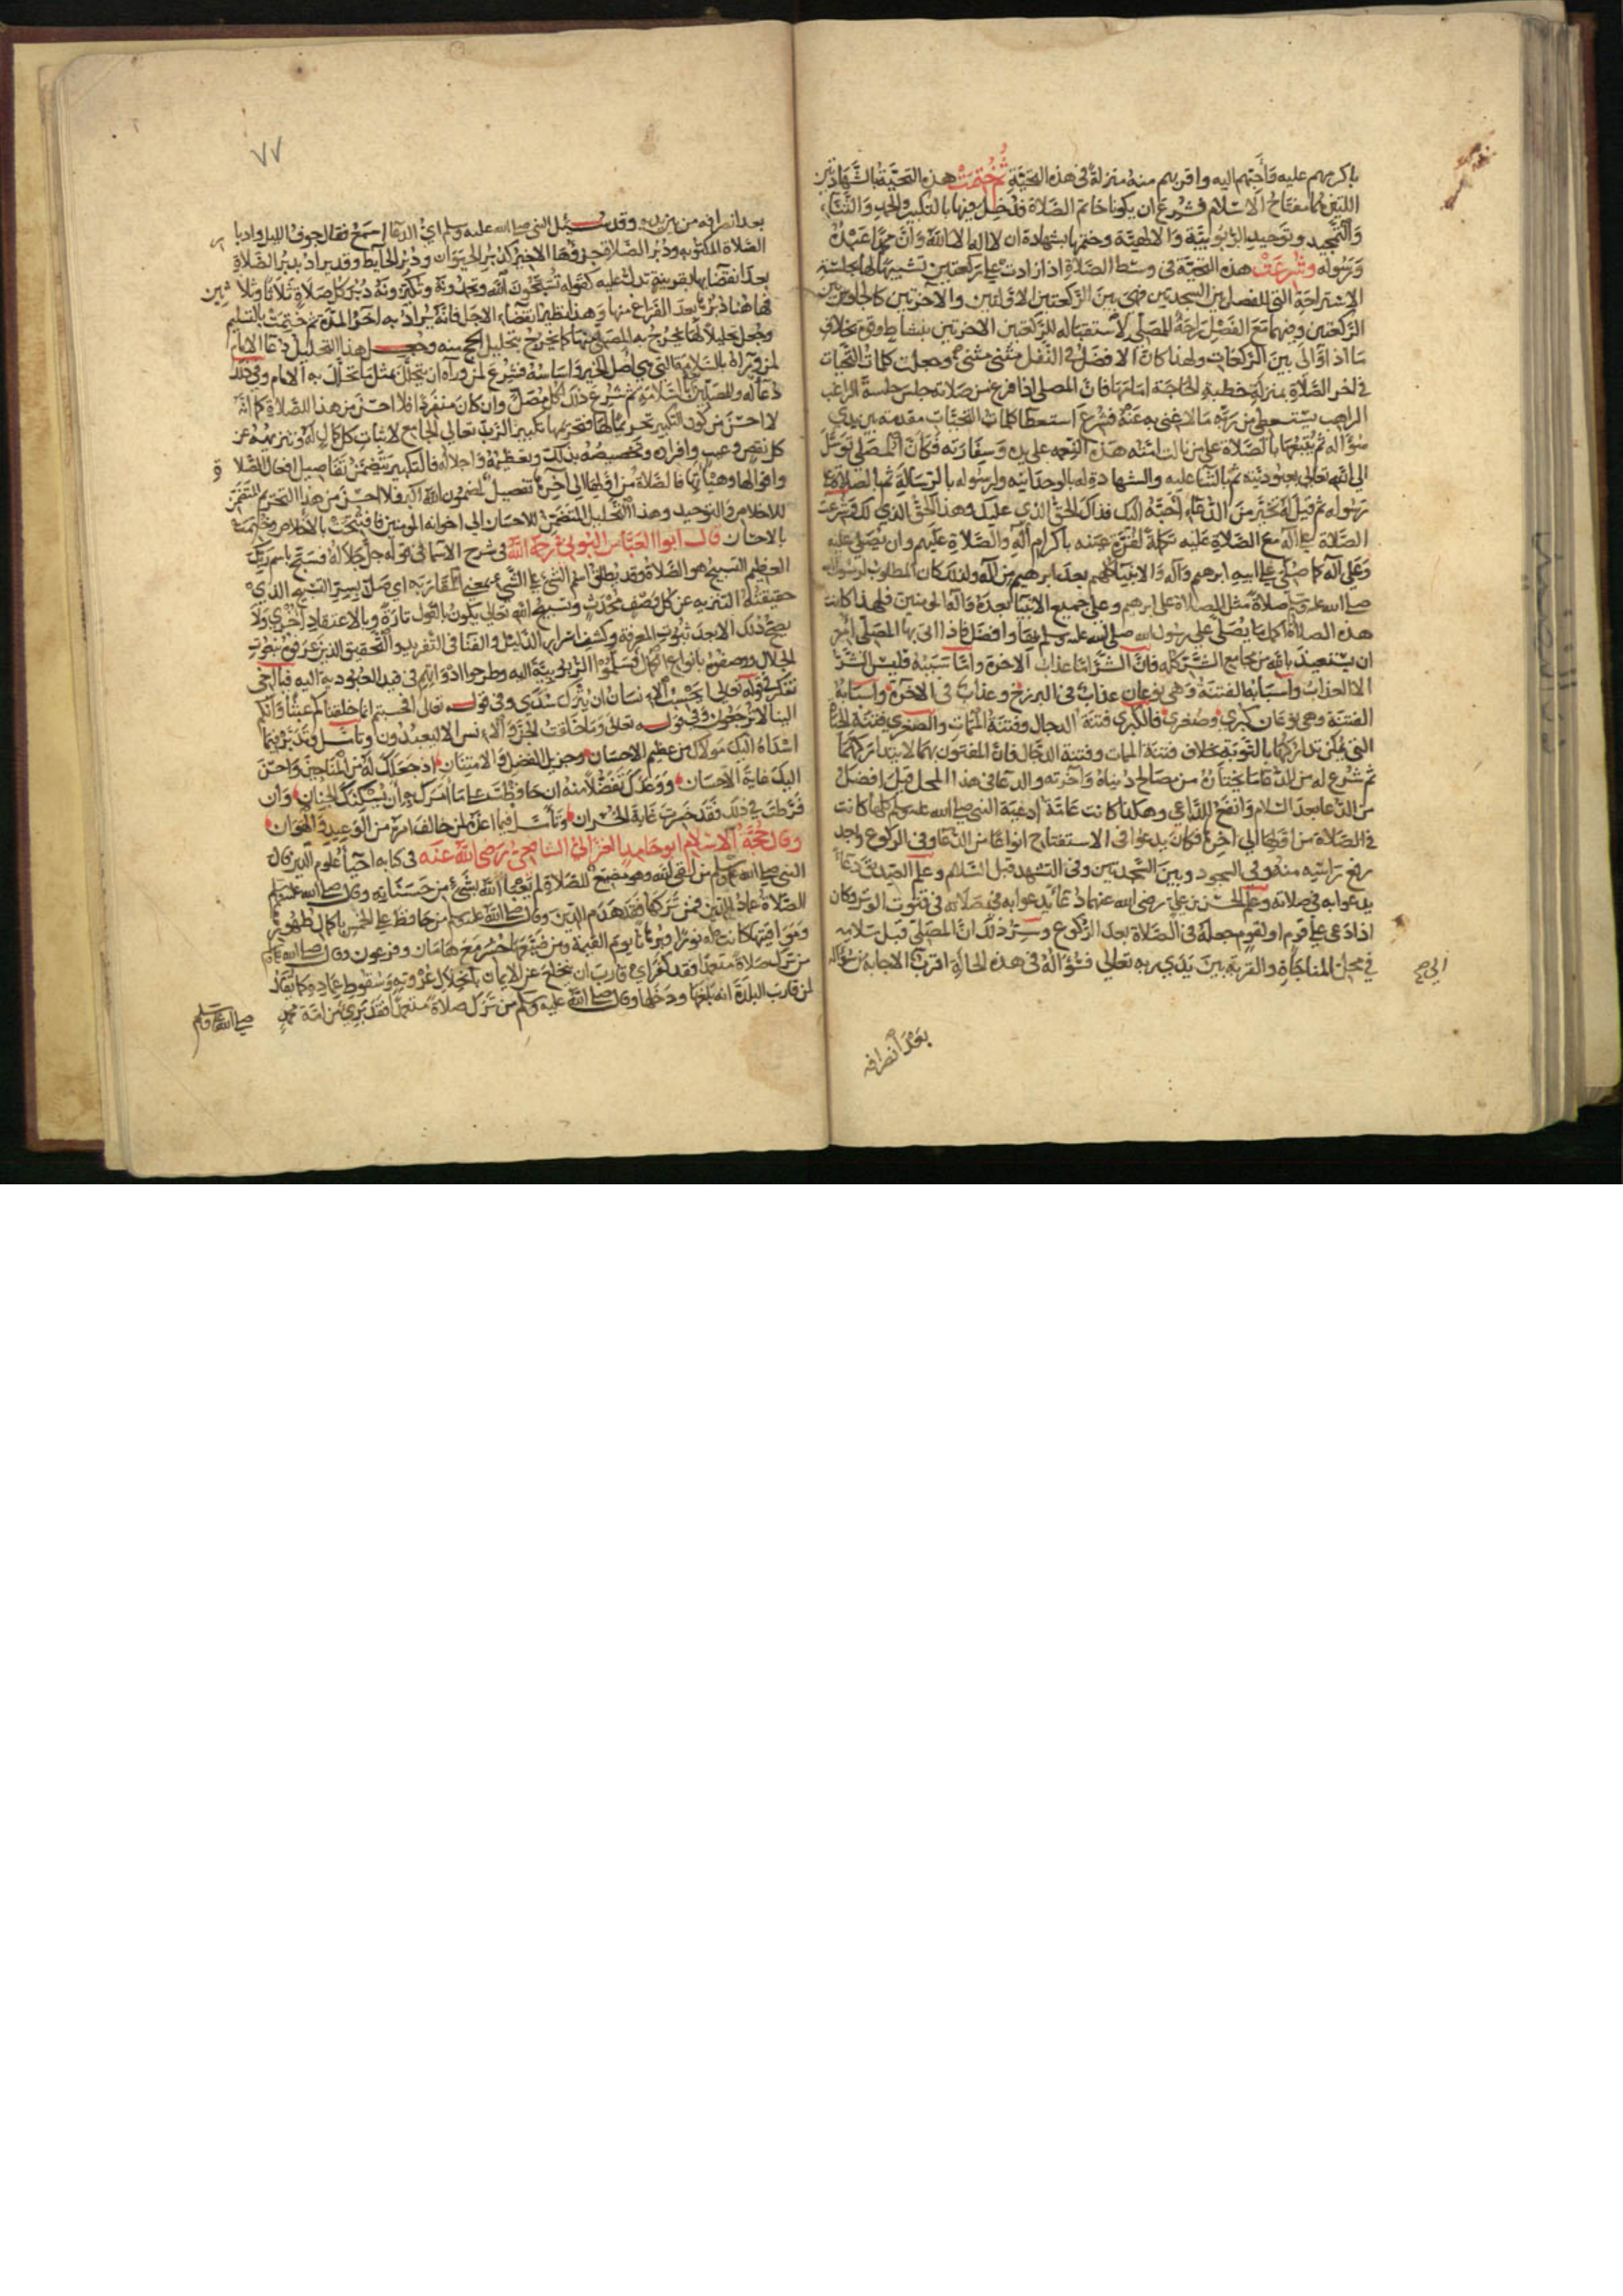 باكرمهم عليه وأحبهم اليه واقربهم منه منزلة في هذه التحية ثم ختمت هذه التحية بالشهادتين
اللتين هما مفتاح الاسلام فشرع ان يكونا خاتم الصلاة فدخل فيها بالتكبير والحمد والثناء
والتمجيد وتوحيد الربوبية والالهية وختمها بشهادة ان لا اله الا الله وأن محمدا عبده
ورسوله وشرعت هذه التحية في وسط الصلاة اذا زادت على ركعتين تشبيها لها بجلسة
الاستراحة التي للفصل بين السجدتين فهي بين الركعتين الاولتين والآخرتين كالجلوس بين
الركعتين وفيها مع الفصل راحة للمصلي لاستقباله للركعتين الاخرتين بنشاط وقوة بخلاف
ما اذا والى بين الركعات ولهذا كان الافضل في النفل مثنى مثنى وجعلت كلمات التحيات
في اخر الصلاة بمنزلة خطبة الحاجة امامها فان المصلي اذا فرغ من صلاته جلس جلسة الراغب
الراهب يستعطي من ربه ما لا غنى به عنه فشرع استعطا كلمات التحيات مقدمة بين يدي
سؤاله ثم يتبعها بالصلاة على من نالت امته هذه النعمة على يده وسفارته فكان المصلي توسل
الى الله تعالى بعبوديته ثم بالثناء عليه والشهادة له بالوحدانية ولرسوله بالرسالة ثم بالصلاة على
رسوله ثم قيل له تخير من الدعاء احبه اليك فذاك الحق الذي عليك وهذا الحق الذي لك وشرعت
الصلاة على آله مع الصلاة عليه تكملة لقرة عينه باكرام آله والصلاة عليهم وان يصلى عليه
وعلى آله كما صلى على ابيه ابرهيم وآله والانبياء كلهم بعد ابرهيم من آله ولذلك كان المطلوب لرسول الله
صلى الله عليه وسلم صلاة مثل الصلاة على ابرهيم وعلى جميع الانبيا بعده وآله المومنين فلهذا كانت
هذه الصلاة اكمل ما يصلى على رسول الله صلى الله عليه وسلم بها وافضل فاذا اتى بها المصلي امر
ان يستعيذ بالله من مجامع الشر كله فان الشر اما عذاب الاخرة واما سببه فليس الشر
الا العذاب واسبابه الفتنة وهي نوعان عذاب في البرزخ وعذاب في الاخرة واسبابه
الفتنة وهي نوعان كبرى وصغرى فالكبرى فتنة الدجال وفتنة الممات والصغرى فتنة الحياة
التي يمكن تداركها بالتوبة بخلاف فتنة الممات وفتنة الدجال فان المفتون بهما لا يتداركهما
ثم شرع له من الدعا ما يختاره من مصالح دنياه وآخرته والدعا في هذا المحل قبل السلام افضل
من الدعا بعد السلام وانفع للداعي وهكذا كانت عامة ادعية النبي صلى الله عليه وسلم كلها كانت
في الصلاة من اولها الى اخرها فكان يدعوا في الاستفتاح انواعا من الدعا وفي الركوع وبعد
رفع راسه منه وفي السجود وبين السجدتين وفي التشهد قبل السلام وعلم الصديق دعاء
يدعوا به في صلاته وعلم الحسن بن علي رضي الله عنهما دعاء يدعوا به في قنوت الوتر وكان
اذا دعى على قوم او لقوم جعله في الصلاة بعد الركوع وسر ذلك ان المصلي قبل سلامه
في محل المناجاة والقربة بين يدي ربه تعالى فسؤاله في هذه الحالة اقرب الى الاجابة من سؤاله
بعد انصرافه
٧٧
بعد انصرافه من بين يديه وقد سئل النبي صلى الله عليه وسلم اي الدعا اسمع فقال جوف الليل وادبار
الصلاة المكتوبة ودبر الصلاة جزؤها الاخير كدبر الحيوان ودبر الحايط وقد يراد بدبر الصلاة
بعد انقضايها بقرينة تدل عليه كقوله تسبحون الله وتحمدونه وتكبرونه دبر كل صلاة ثلاثا وثلاثين
فهاهنا دبرها بعد الفراغ منها وهذا نظير انقضاء الاجل فانه يراد به آخر المدة ثم ختمت بالتسليم
وجعل تحليلا لها يخرج به المصلي منها كما يخرج بتحليل الحج منه وجعل هذا التحليل دعا الامام
لمن وراه بالسلامة التي هي اصل الخير واساسه فشرع لمن وراه ان يتحلل بمثل ما تحلل به الامام وفي ذلك
دعا له وللمصلين بالسلامة ثم شرع ذلك لكل مصل وان كان منفردا فلا احسن من هذا للصلاة كما انه
لا احسن من كون التكبير تحريما لها فتحريمها تكبير الرب تعالى الجامع لاثبات كل كمال له وتنزيهه عن
كل نقص وعيب وافراده وتخصيصه بذلك وتعظيمه واجلاله فالتكبير يتضمن تفاصيل افعال الصلاة
واقوالها وهيآتها فالصلاة من اولها الى آخرها تفصيل لمضمون الله اكبر فلا احسن من هذا التحريم المتضمن
للاخلاص والتوحيد وهذا التحليل المتضمن للاحسان الى اخوانه المومنين فافتتحت بالاخلاص وختمت
بالاحسان قال ابوا العباس البوني رحمه الله في شرح الاسما في قوله جل جلاله فسبح باسم ربك
العظيم التسبيح هو الصلاة وقد يطلق اسم الشي على الشي بمعنى المقاربة اي صل بسر التنبيه الذي
حقيقته التنزيه عن كل وصف محدث وتسبيح الله تعالى يكون بالقول تارة وبالاعتقاد اخرى ولا
يصح ذلك الا بعد ثبوت المعرفة وكشف اسرار الدليل والفنا في التفريد والتحقيق الذين عرفوا نعوت
الجلال ووصفوه بانواع الكمال فسلموا الربوبية اليه وطرحوا ذواتهم في قيد العبودية اليه فيا اخي
تفكر في قوله تعالى ايحسب الانسان ان يترك سدى وفي قوله تعالى افحسبتم انما خلقناكم عبثا وانكم
الينا لا ترجعون وفي قوله تعالى وما خلقت الجن والانس الا ليعبدون وتامل وتدبر فيما
اسداه اليك مولاك من عظيم الاحسان وجزيل الفضل والامتنان اذ جعلك له من المناجين واحسن
اليك غاية الاحسان ووعدك تفضلا منه ان حافظت على ما امرك به ان يسكنك الجنان وان
فرطت في ذلك فقد خسرت غاية الخسران وتأمل فيما اعده لمن خالف امره من الوعيد والهوان
وقال حجة الاسلام ابو حامد الغزالي الشافعي رضي الله عنه في كتابه احيا علوم الدين قال
النبي صلى الله عليه وسلم من لقي الله وهو مضيع للصلاة لم يعبا الله بشيء من حسناته وقال صلى الله عليه وسلم
الصلاة عماد الدين فمن تركها فقد هدم الدين وقال صلى الله عليه وسلم من حافظ على الخمس باكمال طهورها
ومواقيتها كانت له نورا وبرهانا يوم القيمة ومن ضيعها حشر مع هامان وفرعون وقال صلى الله عليه وسلم
من ترك صلاة متعمدا فقد كفر اي قارب ان ينخلع عن الايمان بانحلال عروته وسقوط عماده كما يقال
لمن قارب البلدة انه بلغها ودخلها وقال صلى الله عليه وسلم من ترك صلاة متعمدا فقد بريء من امة محمد صلى الله عليه وسلم